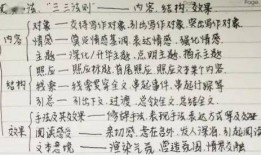 法"三三法则"——内容、结构、效果
内容
对象——交待写作对象,引出写作对象,突出写作对象
情感——奠定情感基调,表达情感,强化情感
主题——深化/升华主题,点明主题,揭示主题
结构
照应——照应标题,首尾照应,照应文章某个内容。
线索——线索贯穿全文,串起事件,串起材料等
引总——引出下文,过渡,总领全文,总结全文。
效果
手法及其效果——修辞手法,表现手法,表达方式等及
阅读感受——亲切感,意在言外,发人深省,引起阅读
文本意境——渲染气氛,营造氛围,情景交融